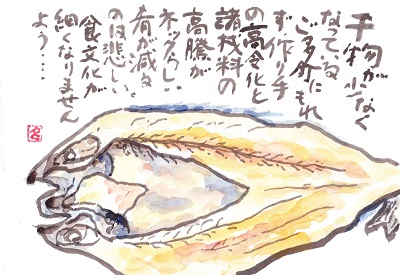 干物が少なく
なっている
ご多分にもれ
ず、作り手
の高令化と
諸材料の
高騰が
ネックらしい
肴が減る
のは悲しい
食文化が
細くなりません
よう‥‥